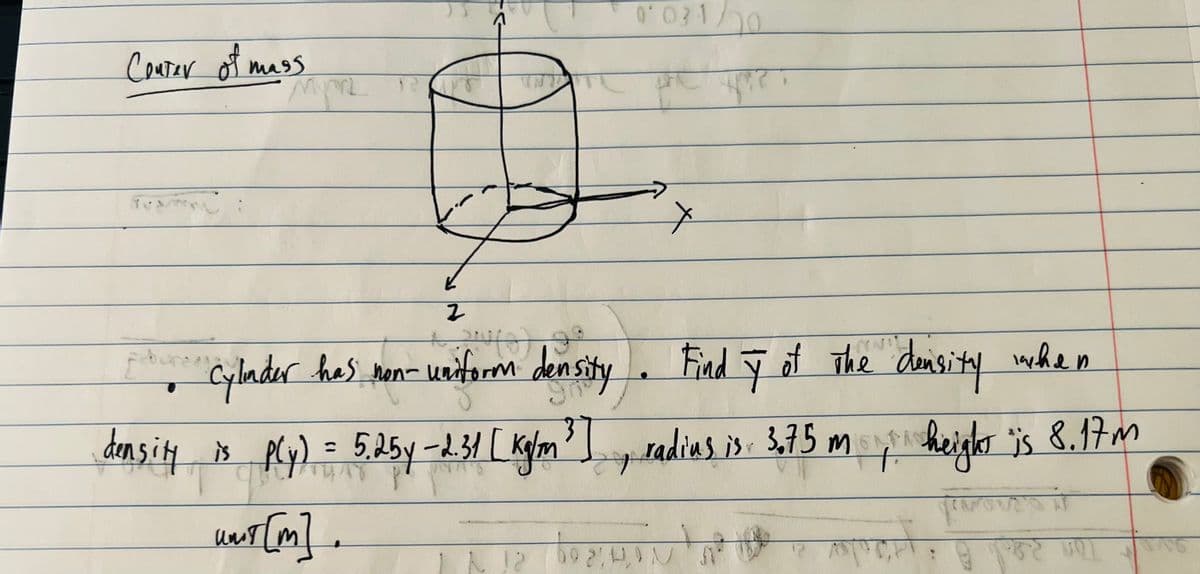 Center of mass
X
Z
• Cylinder has non-uniform density. Find ȳ of The density when
density is ρ(y) = 5.25y - 2.31 [kg/m³], radius is 3.75 m, height is 8.17m
unit [m].